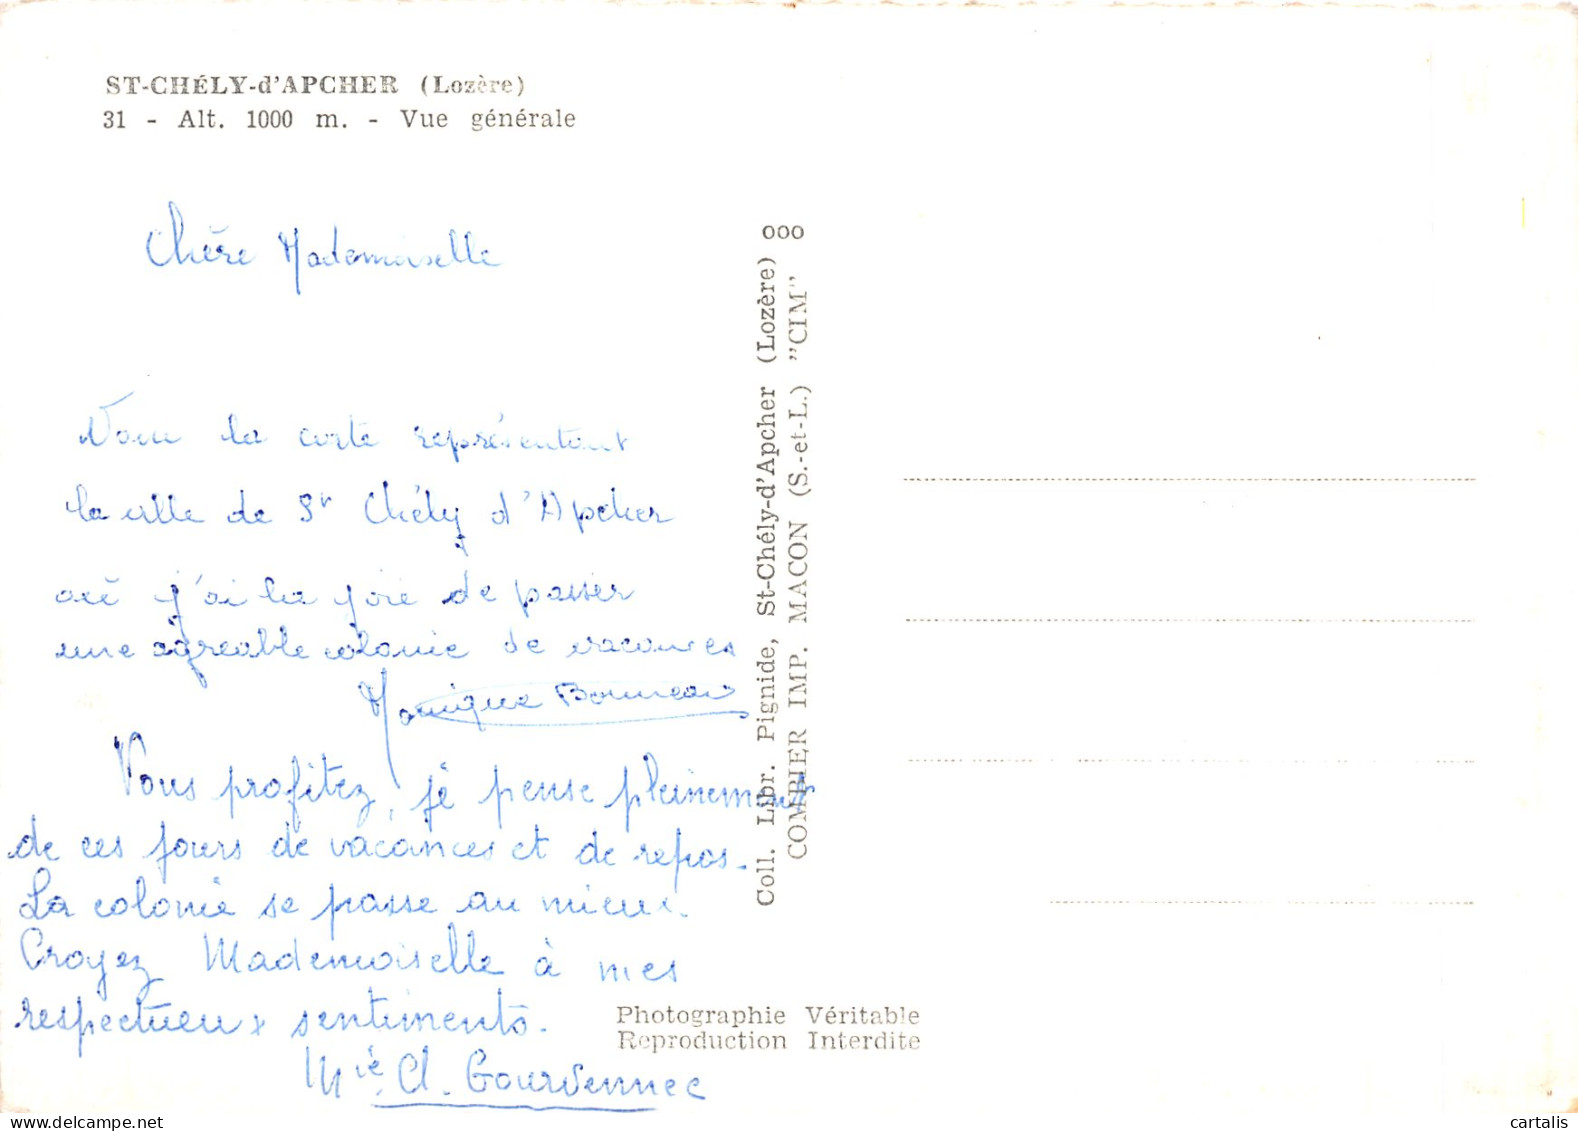 ST-CHÉLY-d'APCHER (Lozère)
31 - Alt. 1000 m. - Vue générale
Chère Mademoiselle
la carte représentant
la ville de St Chély d'Apcher
où j'ai la joie de passer
une agréable colonie de vacances
Monique Bonneau
Vous profitez, je pense pleinement
de ces jours de vacances et de repos.
La colonie se passe au mieux.
Croyez Mademoiselle à mes
respectueux sentiments.
Mie. Cl. Gourvennec
Coll. Libr. Pignide, St-Chély-d'Apcher (Lozère) 000
COMBIER IMP. MACON (S.-et-L.) "CIM"
Photographie Véritable
Reproduction Interdite
cartalis